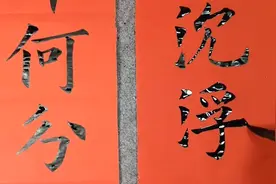 沉浮
何分